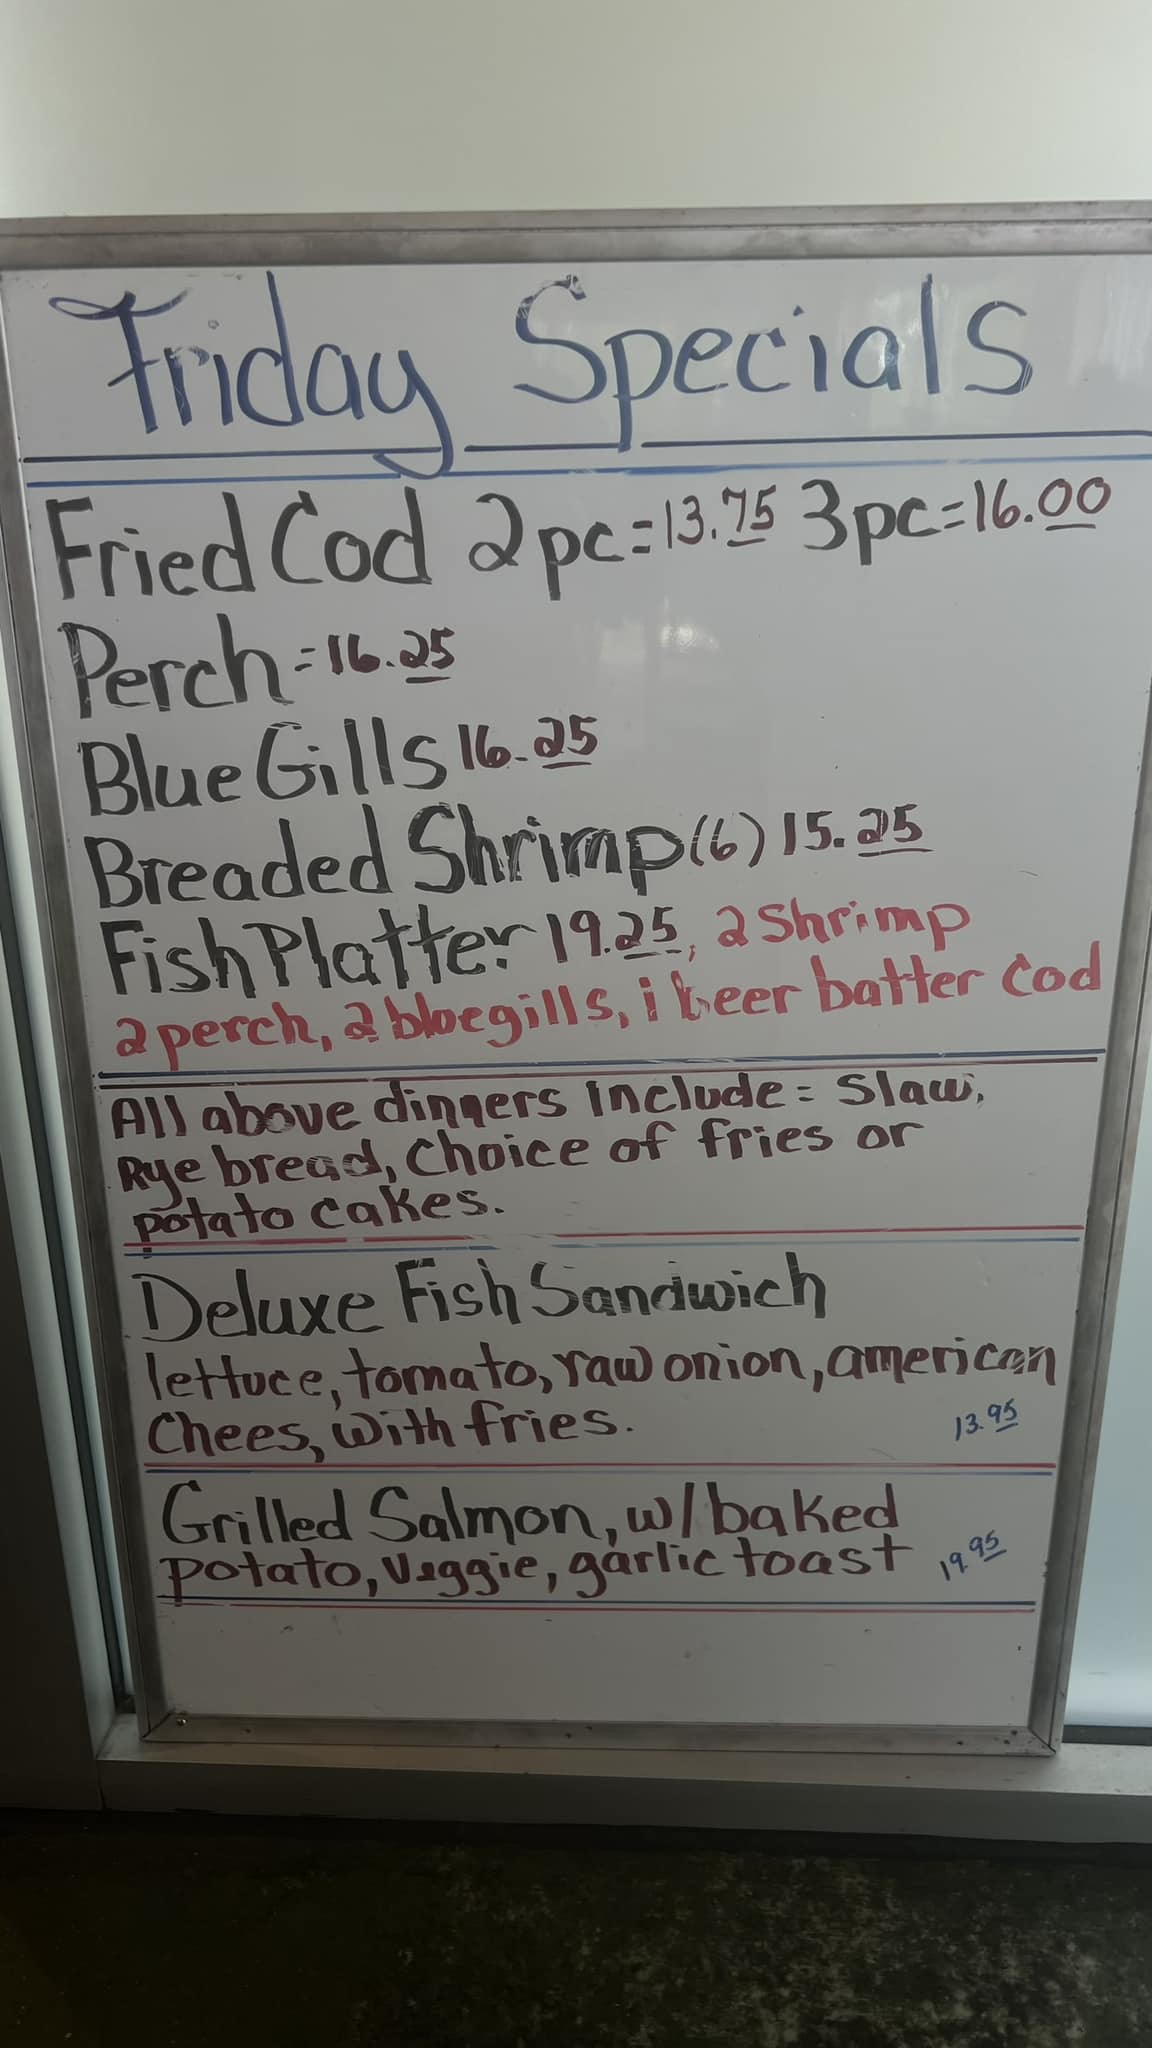 Friday Specials
Fried Cod 2pc=13.75 3pc=16.00
Perch=16.25
Blue Gills 16.25
Breaded Shrimp (6) 15.25
Fish Platter 19.25, 2 Shrimp
2 perch, 2 bluegills, 1 beer batter cod
All above dinners include= Slaw,
Rye bread, Choice of fries or
potato cakes.
Deluxe Fish Sandwich
lettuce, tomato, raw onion, american
Chees, with fries. 13.95
Grilled Salmon, w/ baked
potato, Veggie, garlic toast 19.95